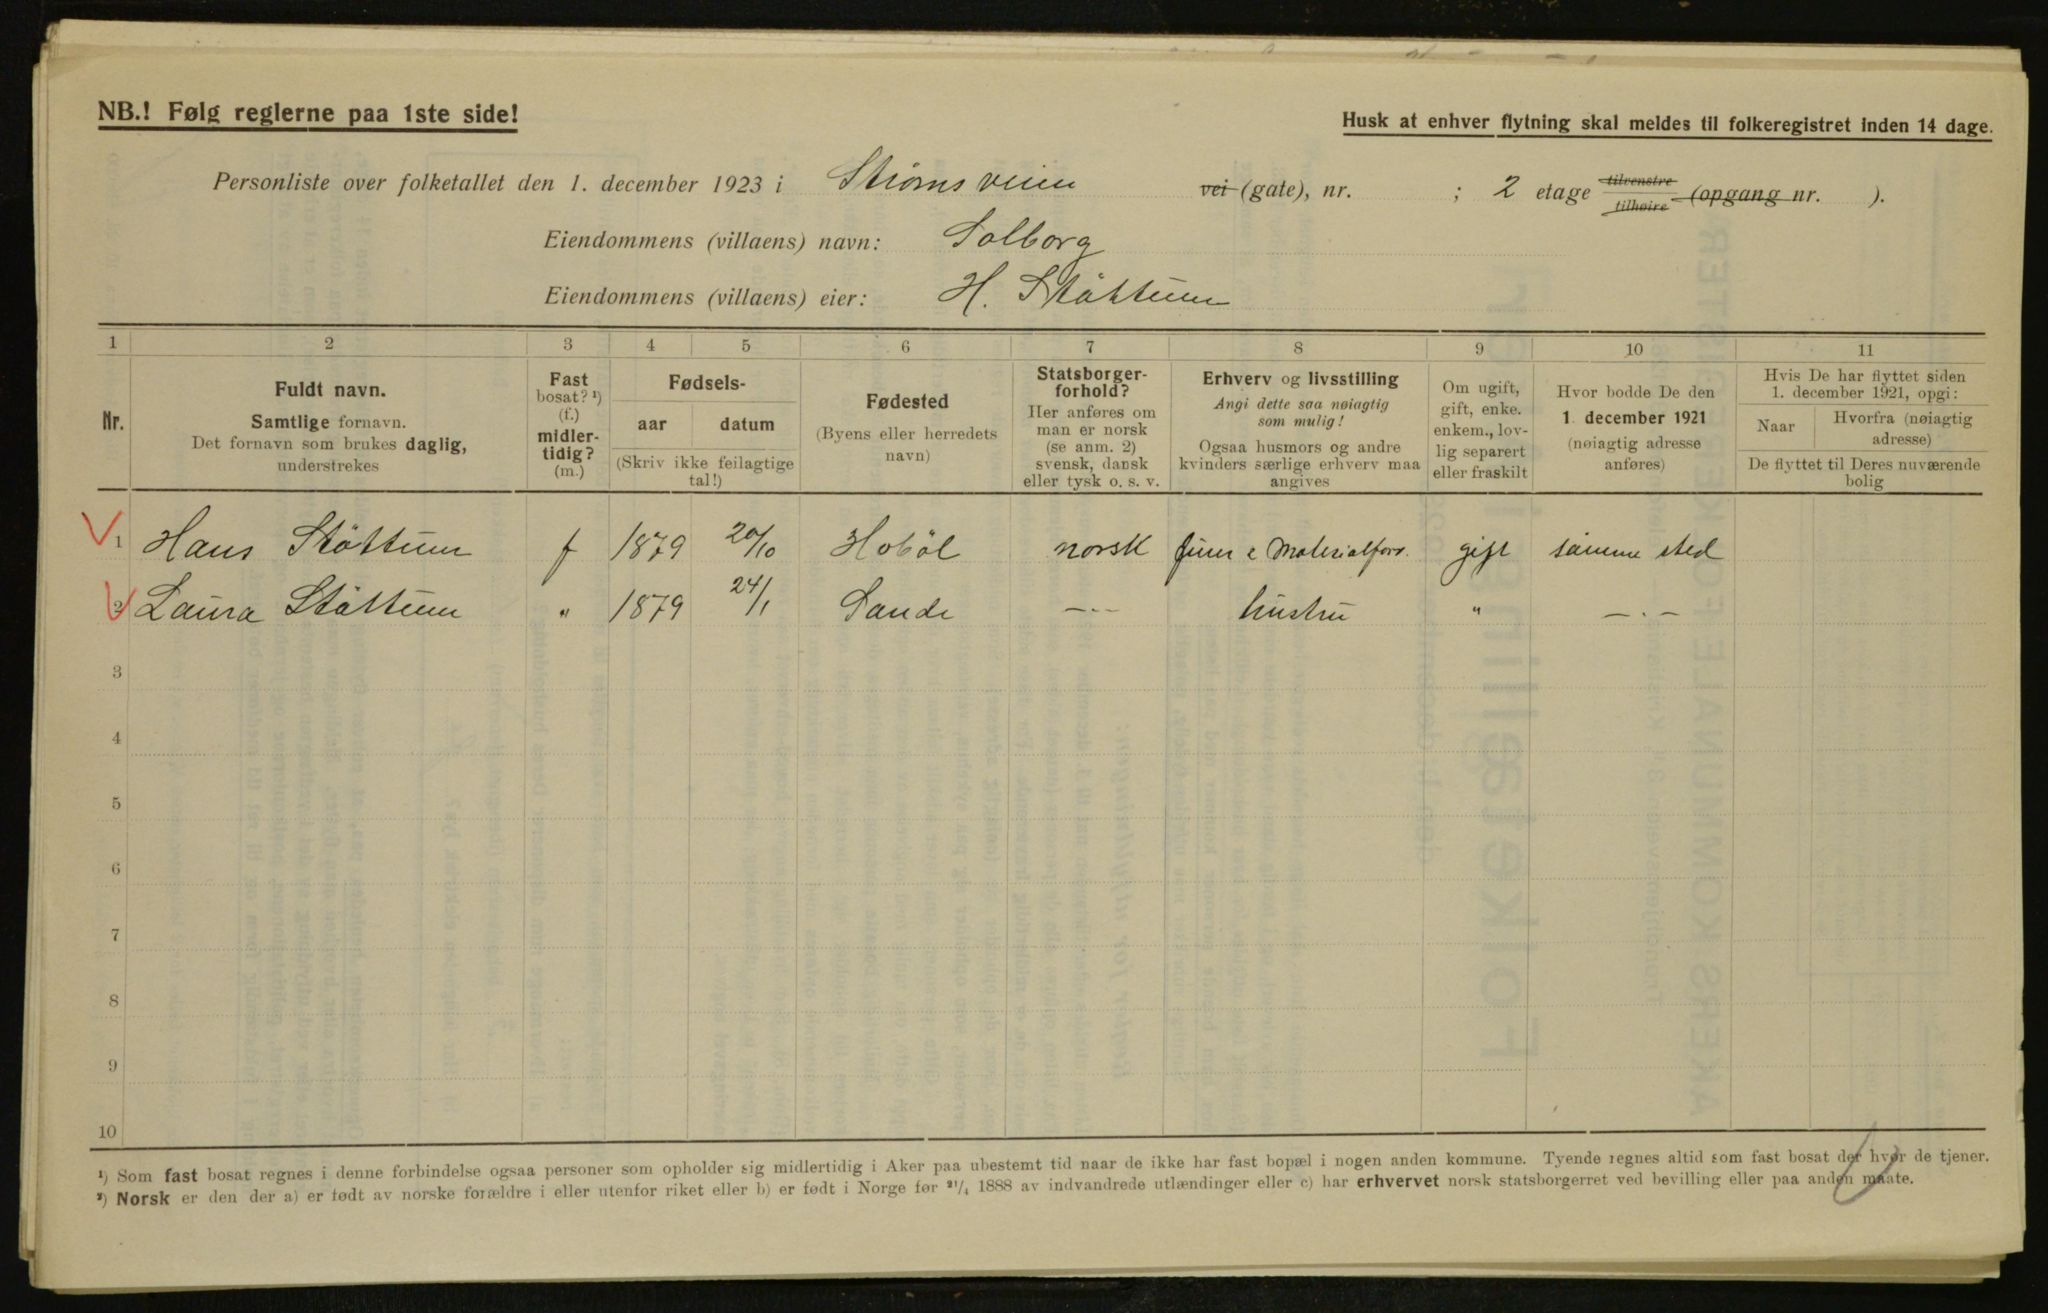 NB.! Følg reglerne paa 1ste side!
Husk at enhver flytning skal meldes til folkeregistret inden 14 dage.
Personliste over folketallet den 1. december 1923 i Strømsveien vei (gate), nr. ; 2 etage tilvenstre tilhøire (opgang nr. ).
Eiendommens (villaens) navn: Solborg
Eiendommens (villaens) eier: H. Støttum
1 2 3 4 5 6 7 8 9 10 11
Nr.
Fuldt navn.
Samtlige fornavn.
Det fornavn som brukes daglig,
understrekes
Fast
bosat? ¹)
(f.)
midler-
tidig?
(m.)
Fødsels-
aar datum
(Skriv ikke feilagtige
tal!)
Fødested
(Byens eller herredets
navn)
Statsborger-
forhold?
Her anføres om
man er norsk
(se anm. 2)
svensk, dansk
eller tysk o. s. v.
Erhverv og livsstilling
Angi dette saa nøiagtig
som mulig!
Ogsaa husmors og andre
kvinders særlige erhverv maa
angives
Om ugift,
gift, enke.
enkem., lov-
lig separert
eller fraskilt
Hvor bodde De den
1. december 1921
(nøiagtig adresse
anføres)
Hvis De har flyttet siden
1. december 1921, opgi:
Naar
Hvorfra (nøiagtig
adresse)
De flyttet til Deres nuværende
bolig
1 Hans Støttum f 1879 20/10 Hobøl norsk gift samme sted
2 Laura Støttum " 1879 24/1 Sande —·— hustru " —·—
3
4
5
6
7
8
9
10
¹) Som fast bosat regnes i denne forbindelse ogsaa personer som opholder sig midlertidig i Aker paa ubestemt tid naar de ikke har fast bopæl i nogen anden kommune. Tyende regnes altid som fast bosat der hvor de tjener.
²) Norsk er den der a) er født av norske forældre i eller utenfor riket eller b) er født i Norge før ²¹/₄ 1888 av indvandrede utlændinger eller c) har erhvervet norsk statsborgerret ved bevilling eller paa anden maate.